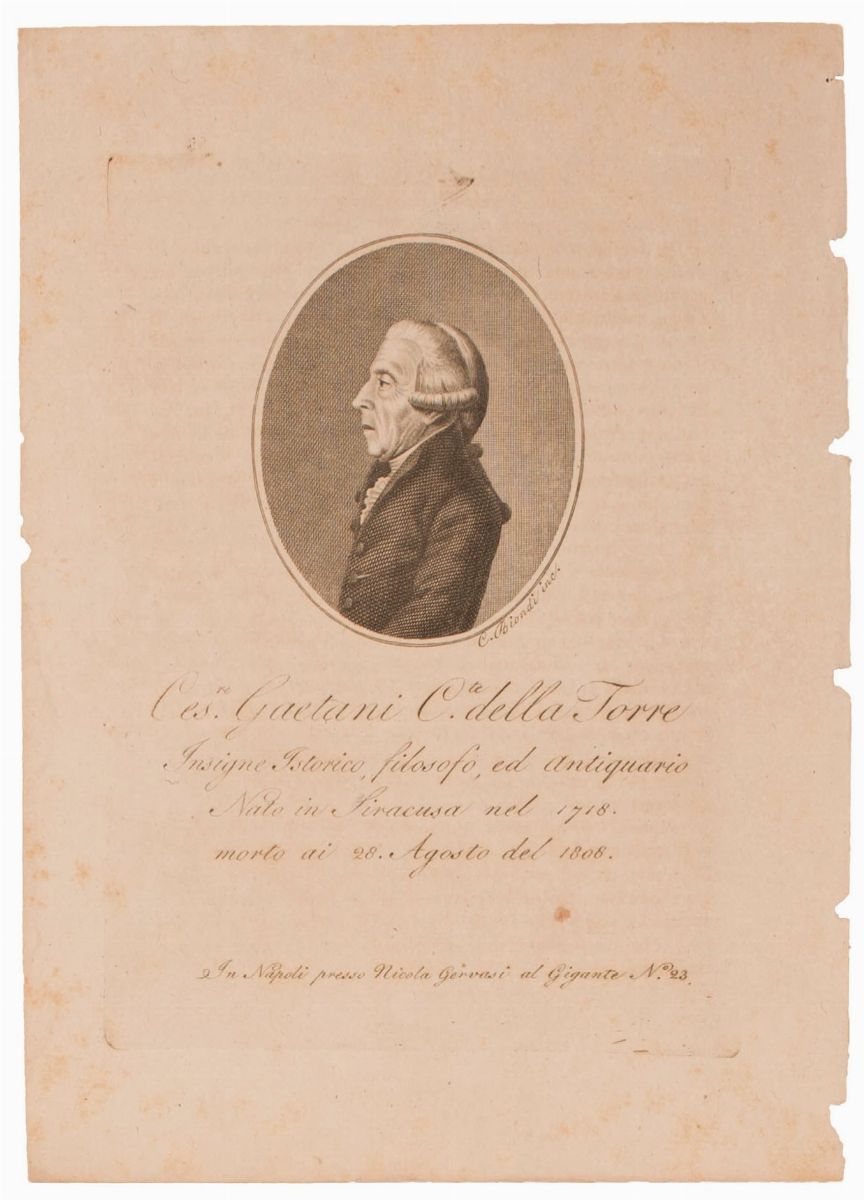 C. Biondi inc.
Ces.re Gaetani C.te della Torre
Insigne Istorico, filosofo, ed Antiquario
Nato in Siracusa nel 1718.
morto ai 28. Agosto del 1808.
In Napoli presso Nicola Gervasi al Gigante N.o 23.